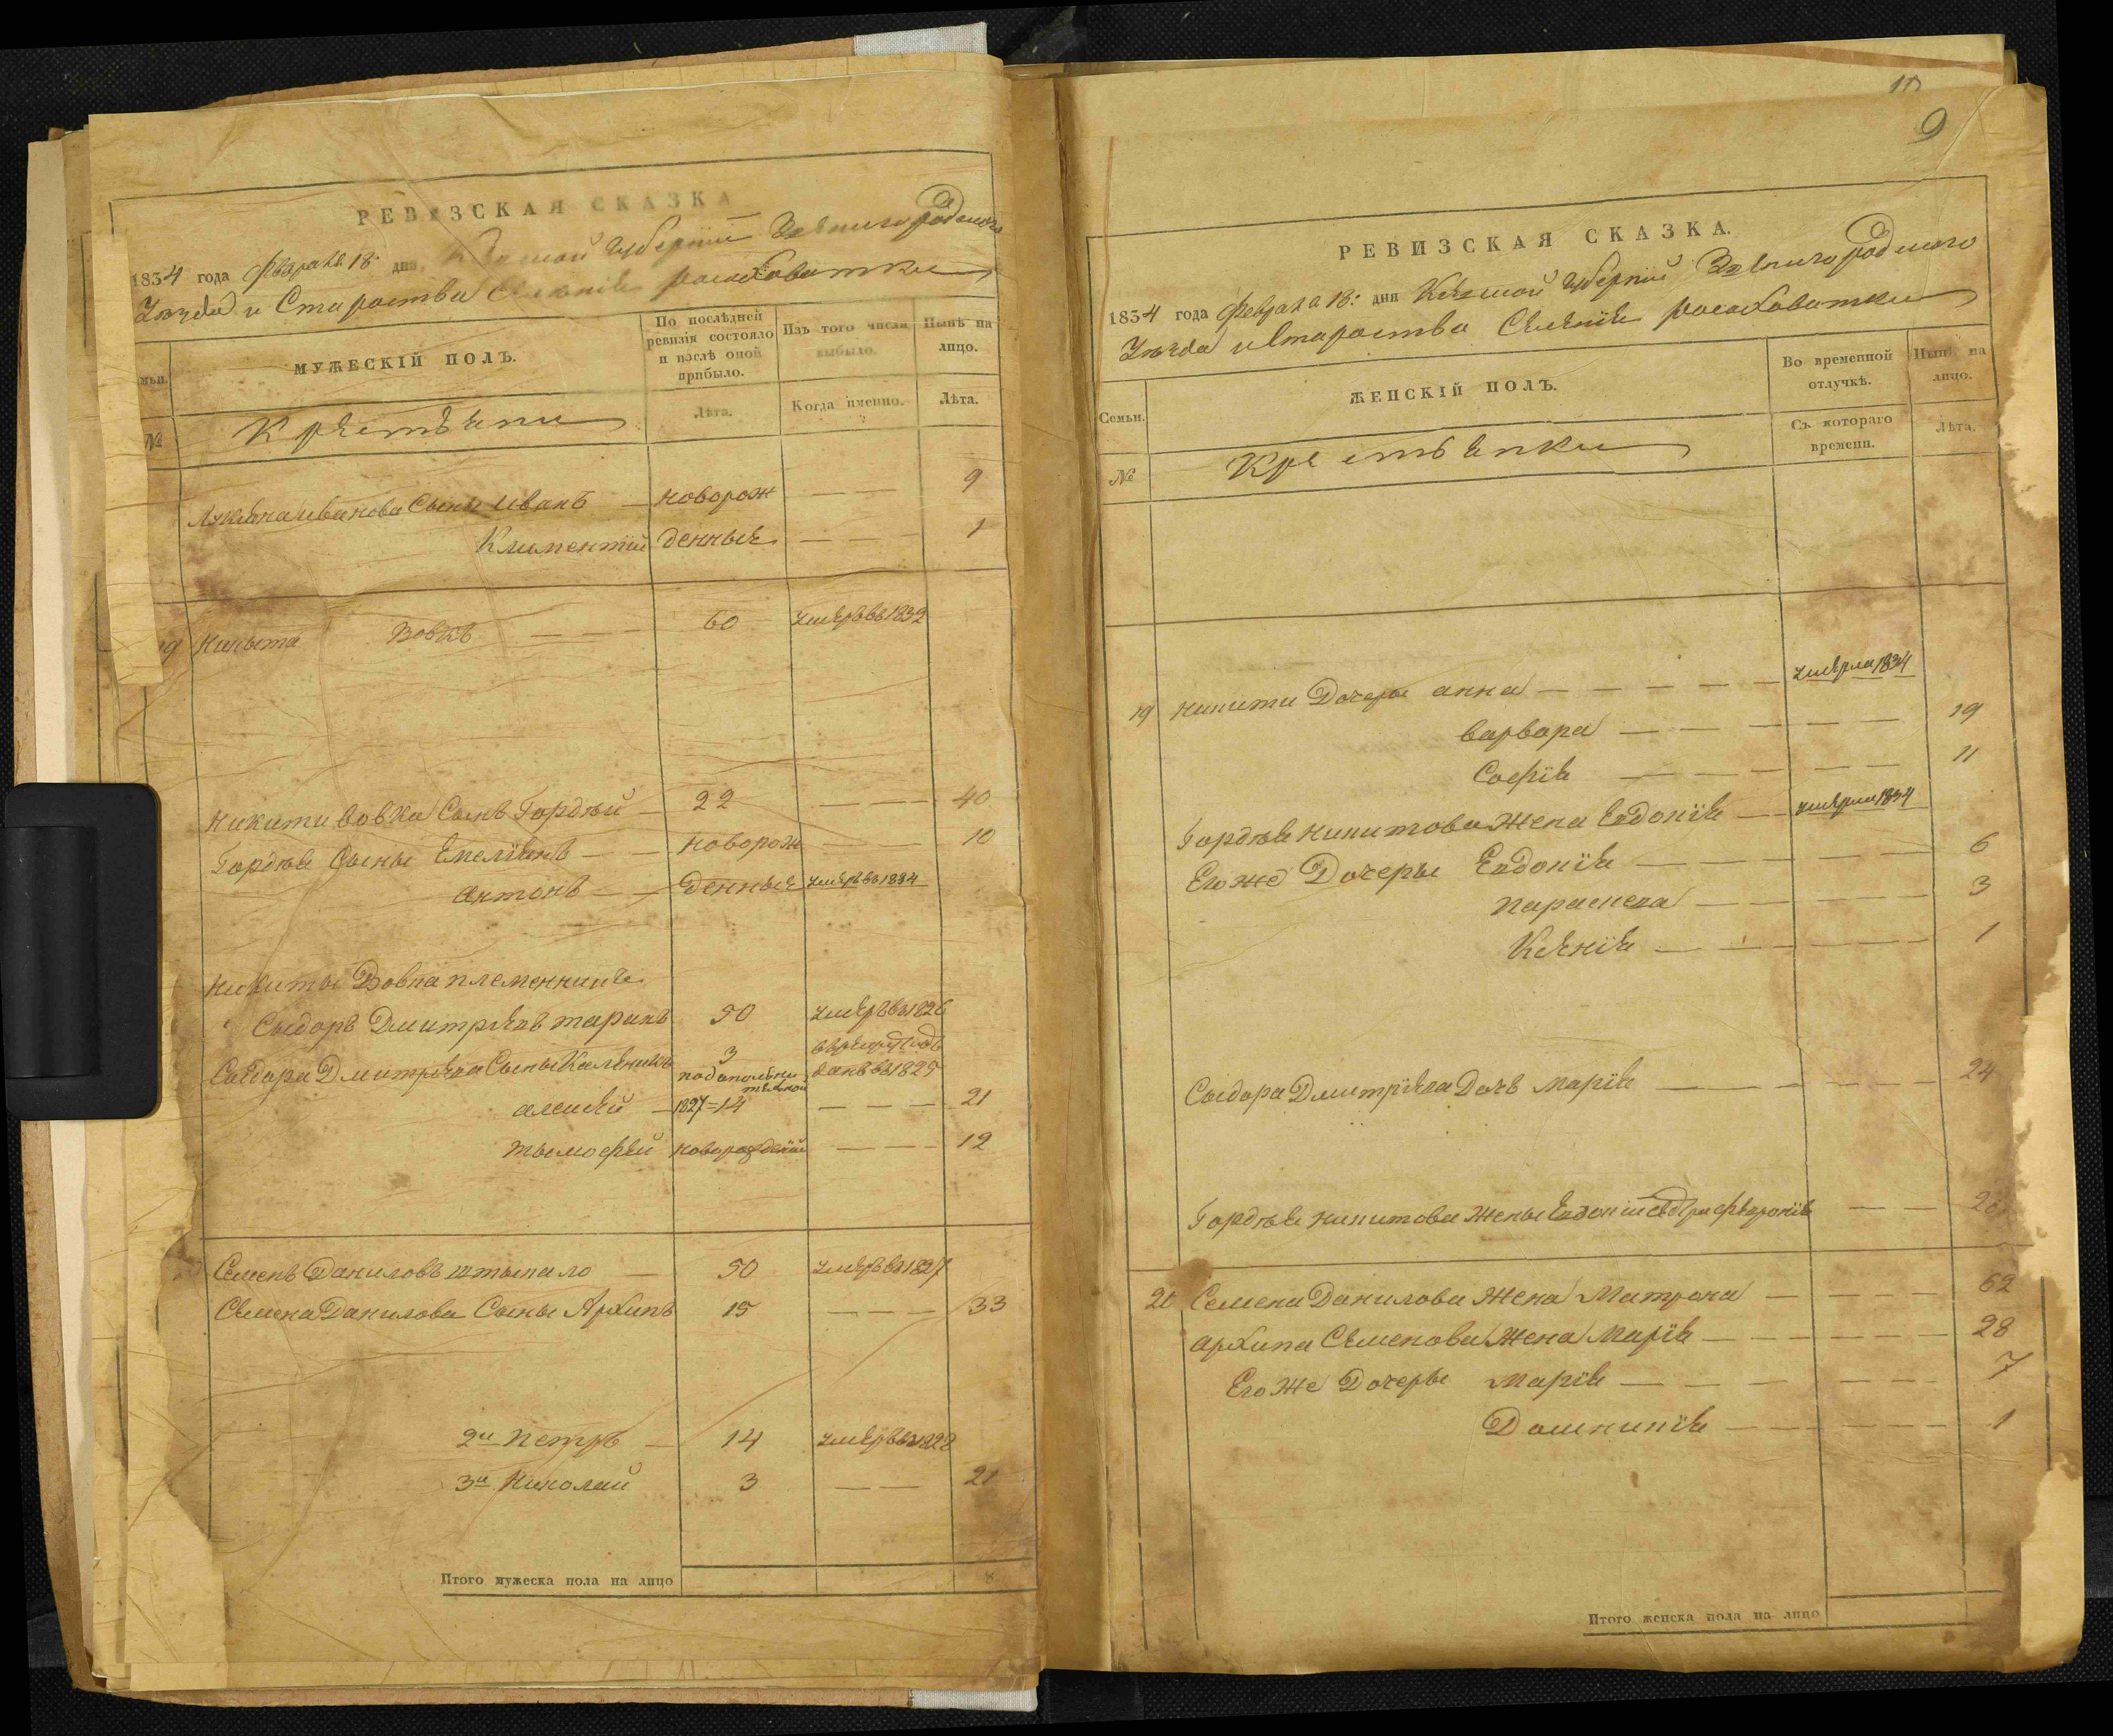 РЕВИЗСКАЯ СКАЗКА
1834 года Февраля 18: дня Кіевской Губерніи Звенигородского
Уѣзда и Староства Селенія росоховатки
мьи.
МУЖЕСКІЙ ПОЛЪ.
По послѣдней ревизіи состояло и послѣ оной прибыло.
Изъ того числа выбыло.
Нынѣ на лицо.
№
Крестьяни
Лѣта.
Когда именно.
Лѣта.
Лукьяна Иванова Сыны Иванъ — новорож — — 9
Климентій денные — — 1
19 Никыта Вовкъ — — 60 Умеръ въ 1832
Никити Вовка Сынъ Гордѣй — 22 — — — 40
Гордѣя Сыны Емеліянъ — — новорож — — 10
антонъ — — денные умеръ въ 1834
Никиты Вовка племенники
Сыдоръ Дмитріевъ таранъ 50 Умеръ въ 1826
Сыдора Дмитріева Сыны Каленикъ 3 въ рекруты отданъ въ 1825
алексѣй — по дополнительной 1827=14 — — — 21
тымофей новорожденій — — — 12
Семенъ Даниловъ штыпало — 50 умеръ въ 1827
Семена Данилова Сыны Архипъ 15 — — — 33
2й Петръ — 14 умеръ въ 1828
3й Николай 3 — — 21
Итого мужеска пола на лицо 8
10
9
РЕВИЗСКАЯ СКАЗКА.
1834 года Февраля 18: дня Кіевской Губерніи Звенигородского
Уѣзда и Староства Селеніе росоховатки
Семьи.
ЖЕНСКІЙ ПОЛЪ.
Во временной отлучкѣ.
Нынѣ на лицо.
№
Крестьянки
Съ котораго времени.
Лѣта.
19 Никити Дочеры анна — — — — — умерла 1834
варвара — — — — — 19
Софія — — — — — 11
Гордѣя Никитова Жена Евдокія — умерла 1834
Его же Дочеры Евдокія — — — — — 6
Параскева — — — — — 3
Ксенія — — — — — 1
Сыдора Дмитріева Дочь Марія — — — — — 24
Гордѣя Никитова Жены Евдокіи сестра февронія — — 20
20 Семена Данилова Жена Матрона — — — — 62
Архипа Семенова Жена Марія — — — — 28
Его же Дочеры Марія — — — — 7
Домникія — — — — 1
Итого женска пола на лицо